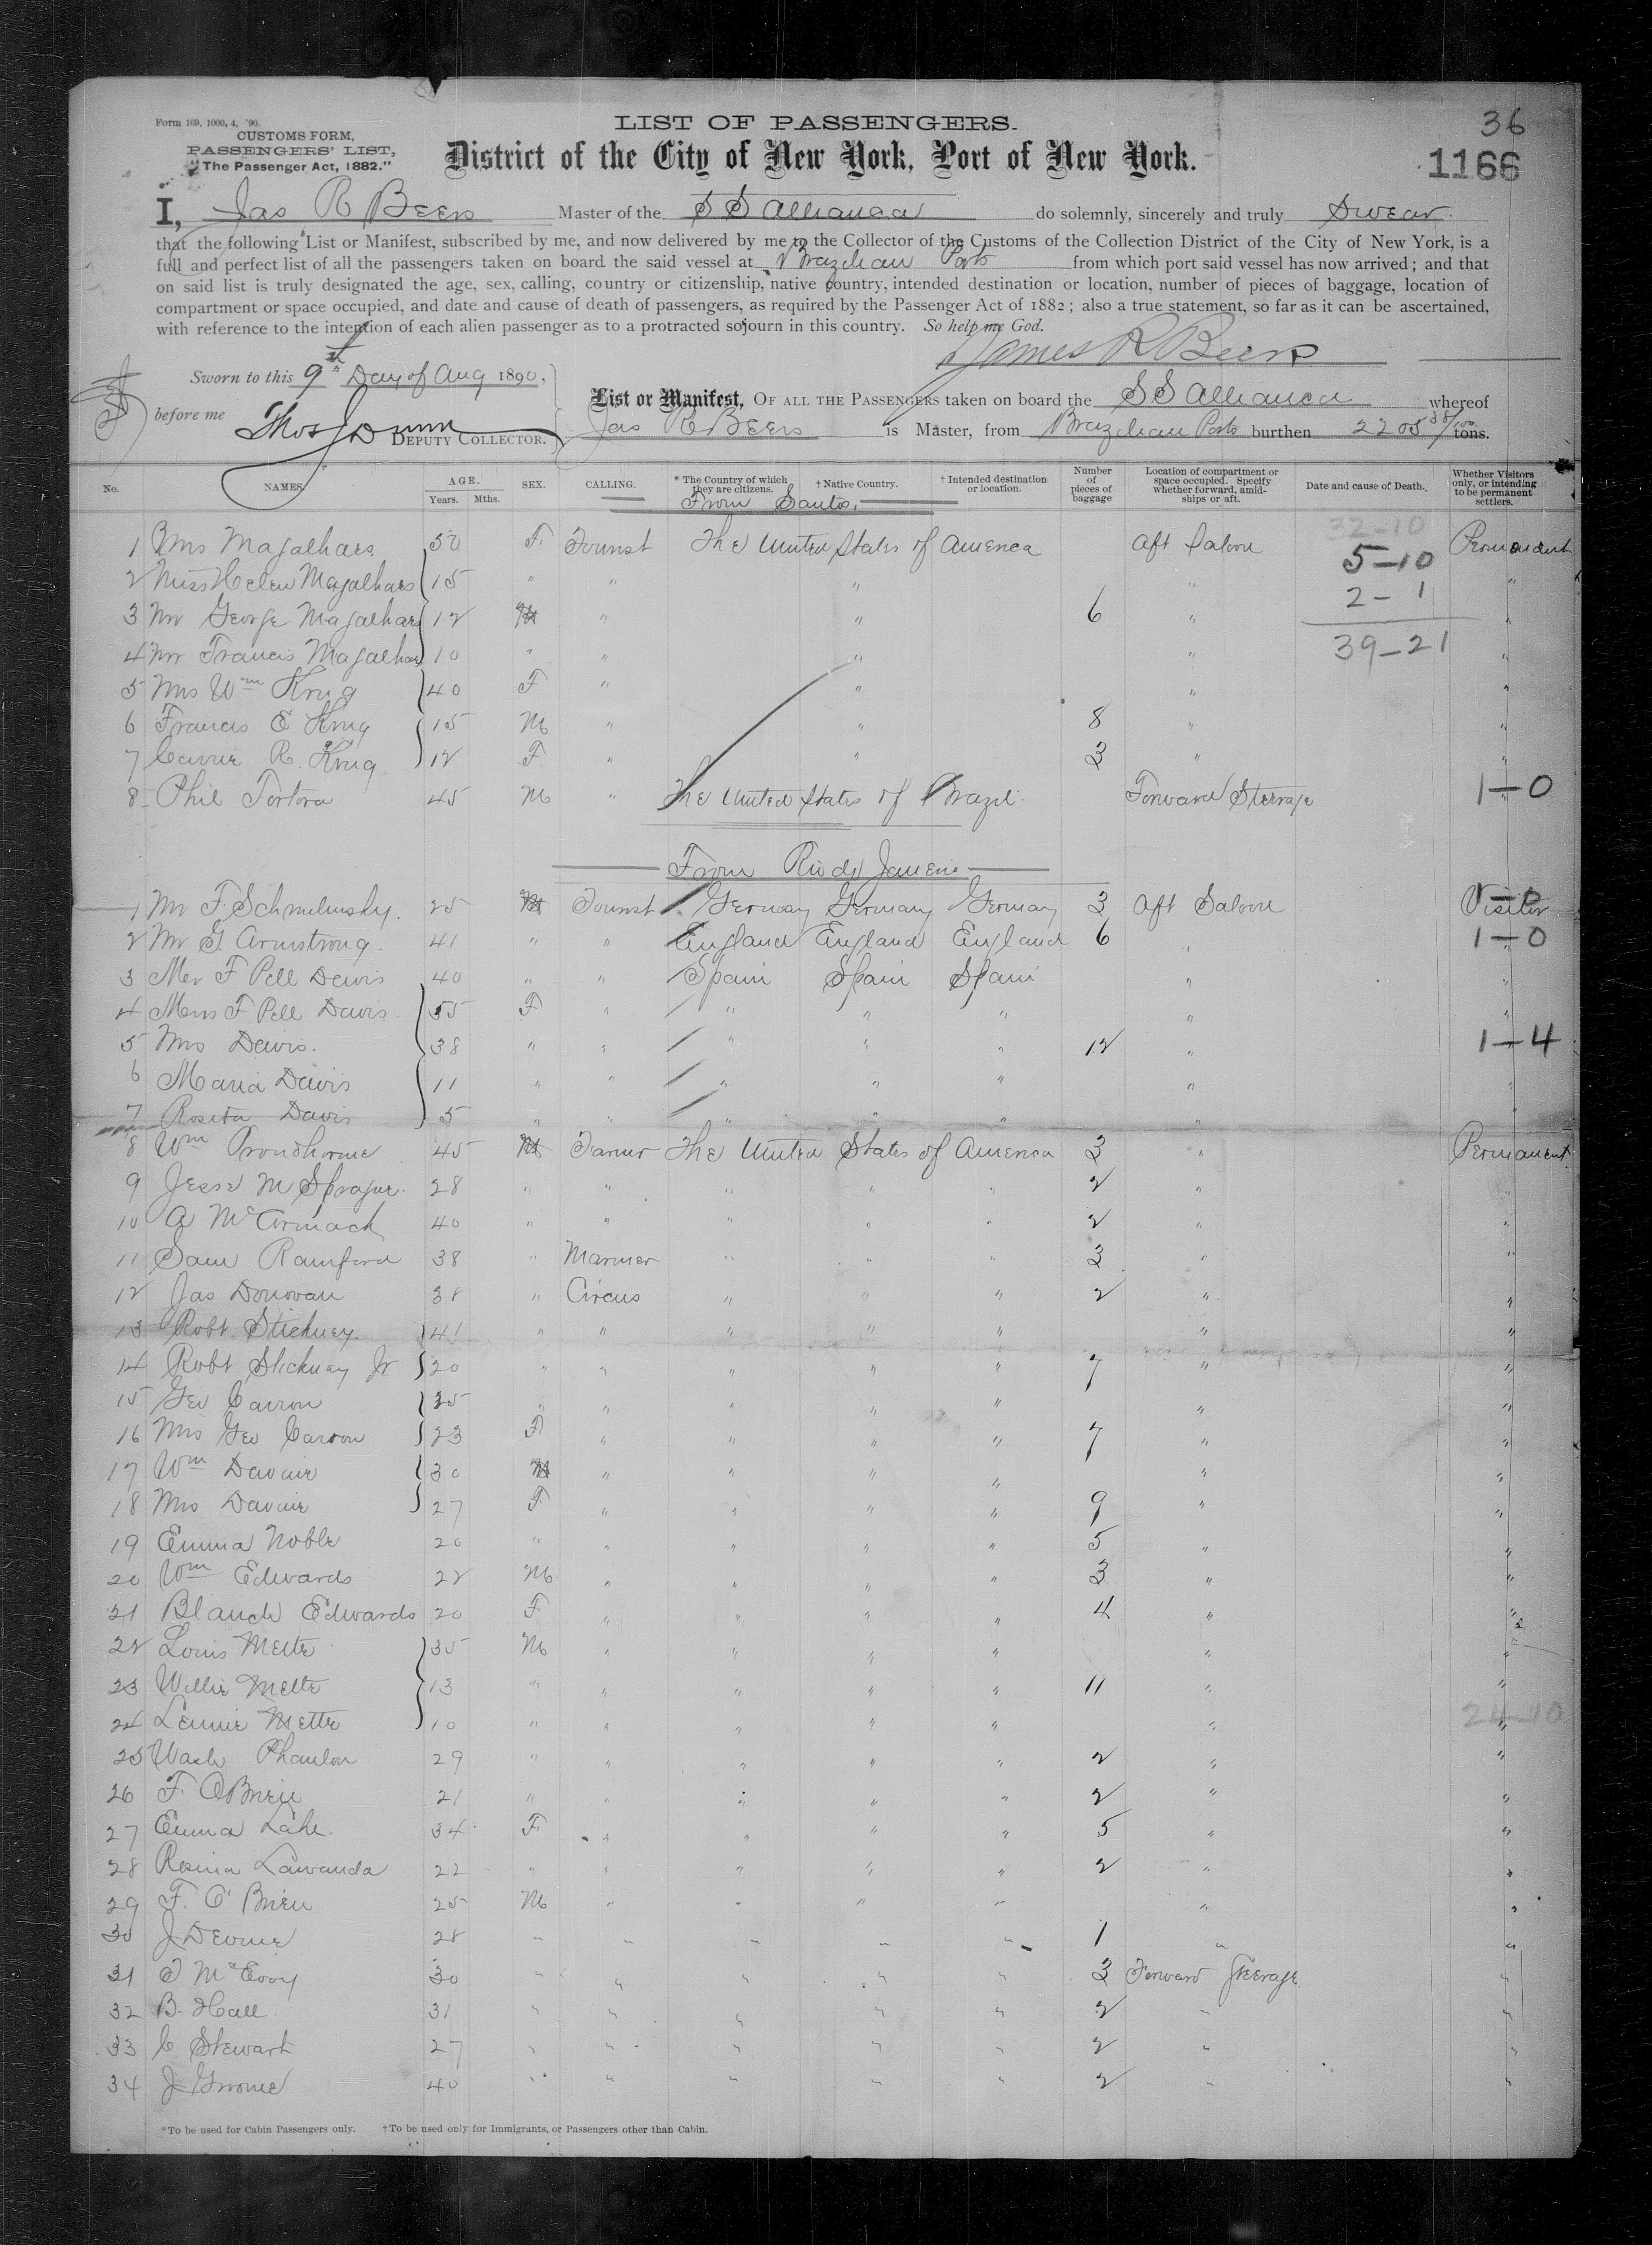 Form 169, 1000, 4, '90.
CUSTOMS FORM,
PASSENGERS' LIST,
"The Passenger Act, 1882."
LIST OF PASSENGERS.
District of the City of New York, Port of New York.
36
1166
I, Jas R Beers Master of the S S Allianca do solemnly, sincerely and truly Swear.
that the following List or Manifest, subscribed by me, and now delivered by me to the Collector of the Customs of the Collection District of the City of New York, is a
full and perfect list of all the passengers taken on board the said vessel at Brazilian Ports from which port said vessel has now arrived; and that
on said list is truly designated the age, sex, calling, country or citizenship, native country, intended destination or location, number of pieces of baggage, location of
compartment or space occupied, and date and cause of death of passengers, as required by the Passenger Act of 1882; also a true statement, so far as it can be ascertained,
with reference to the intention of each alien passenger as to a protracted sojourn in this country. So help me God.
James R Beers
Sworn to this 9th Day of Aug 1890,
before me Thos J Dunn DEPUTY COLLECTOR.
List or Manifest, OF ALL THE PASSENGERS taken on board the S S Allianca whereof
Jas R Beers is Master, from Brazilian Ports burthen 2205 38/100 tons.
No. NAMES. AGE. Years. Mths. SEX. CALLING. * The Country of which they are citizens. † Native Country. † Intended destination or location. Number of pieces of baggage Location of compartment or space occupied. Specify whether forward, amidships or aft. Date and cause of Death. Whether Visitors only, or intending to be permanent settlers.
From Santos.
32-10
1 Mrs Magalhaes 50 F. Tourist The United States of America Aft Saloon Permanent
5-10
2 Miss Helen Magalhaes 15 " " " " "
2-1
3 Mr George Magalhaes 12 M " " 6 " "
39-21
4 Mr Francis Magalhaes 10 " " " " "
5 Mrs Wm Krug 40 F " " " "
6 Francis E Krug 15 M " " 8 " "
7 Carrie R. Krug 12 F " " 3 " "
8 Phil Tortora 45 M " The United States of Brazil Forward Steerage " 1-0
From Rio de Janeiro
1 Mr F. Schmelinsky 25 M Tourist Germany Germany Germany 3 Aft Saloon Visitor 1-0
2 Mr G. Armstrong 41 " " England England England 6 " " 1-0
3 Mr F Pell Davis 40 " " Spain Spain Spain " "
4 Mrs F Pell Davis 35 F " " " " " "
5 Mrs Davis. 38 " " " " " 12 " " 1-4
6 Maria Davis 11 " " " " " " "
7 Roseta Davis 5 " " " " " " "
8 Wm 45 M Farmer The United States of America 3 " Permanent
9 Jesse M Sprague 28 " " " " " 2 " "
10 A McCormack 40 " " " " " 2 " "
11 Sam Ramford 38 " Mariner " " " 3 " "
12 Jas Donovan 38 " Circus " " " 2 " "
13 Robt Stickney. 41 " " " " " " "
14 Robt Stickney Jr 20 " " " " " 7 " "
15 Geo Carron 35 " " " " " " "
16 Mrs Geo Carron 23 F " " " " 7 " "
17 Wm Davine 30 M " " " " " "
18 Mrs Davine 27 F. " " " " 9 " "
19 Emma Noble 20 " " " " " 5 " "
20 Wm Edwards 22 M " " " " 3 " "
21 Blanch Edwards 20 F. " " " " 4 " "
22 Louis Mette 35 M " " " " " "
23 Willie Mette 13 " " " " " 11 " "
24 Lennie Mette 10 " " " " " " " 24-10
25 Wash Phanlon 29 " " " " " 2 " "
26 F. OBrien 21 " " " " " 2 " "
27 Emma Lake. 34 F. " " " " 5 " "
28 Rosina Lawanda 22 " " " " " 2 " "
29 F. O'Brien 25 M " " " " " "
30 J Devine 28 " " " " " 1 " "
31 McEvoy 30 " " " " " 3 Forward Steerage "
32 B. Hall 31 " " " " " 2 " "
33 C Stewart 27 " " " " " 2 " "
34 J 40 " " " " " 2 " "
*To be used for Cabin Passengers only. †To be used only for Immigrants, or Passengers other than Cabin.